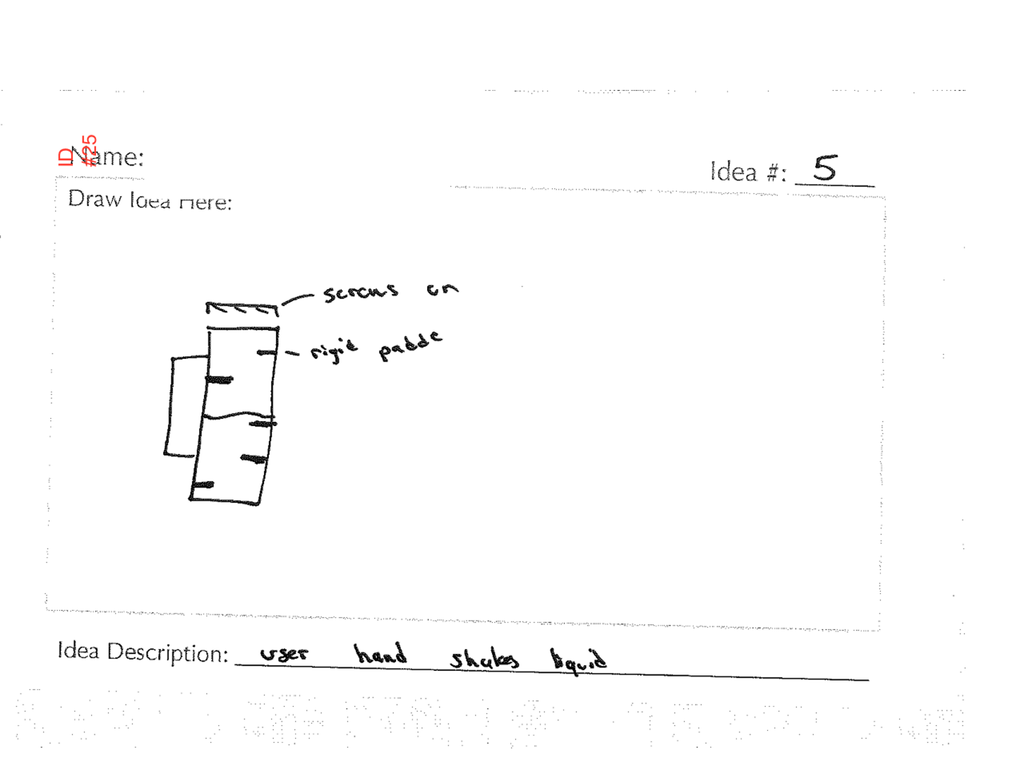 ID
#25
Name:
Idea #: 5
Draw Idea Here:
screws on
rigid paddle
Idea Description: user hand shakes liquid